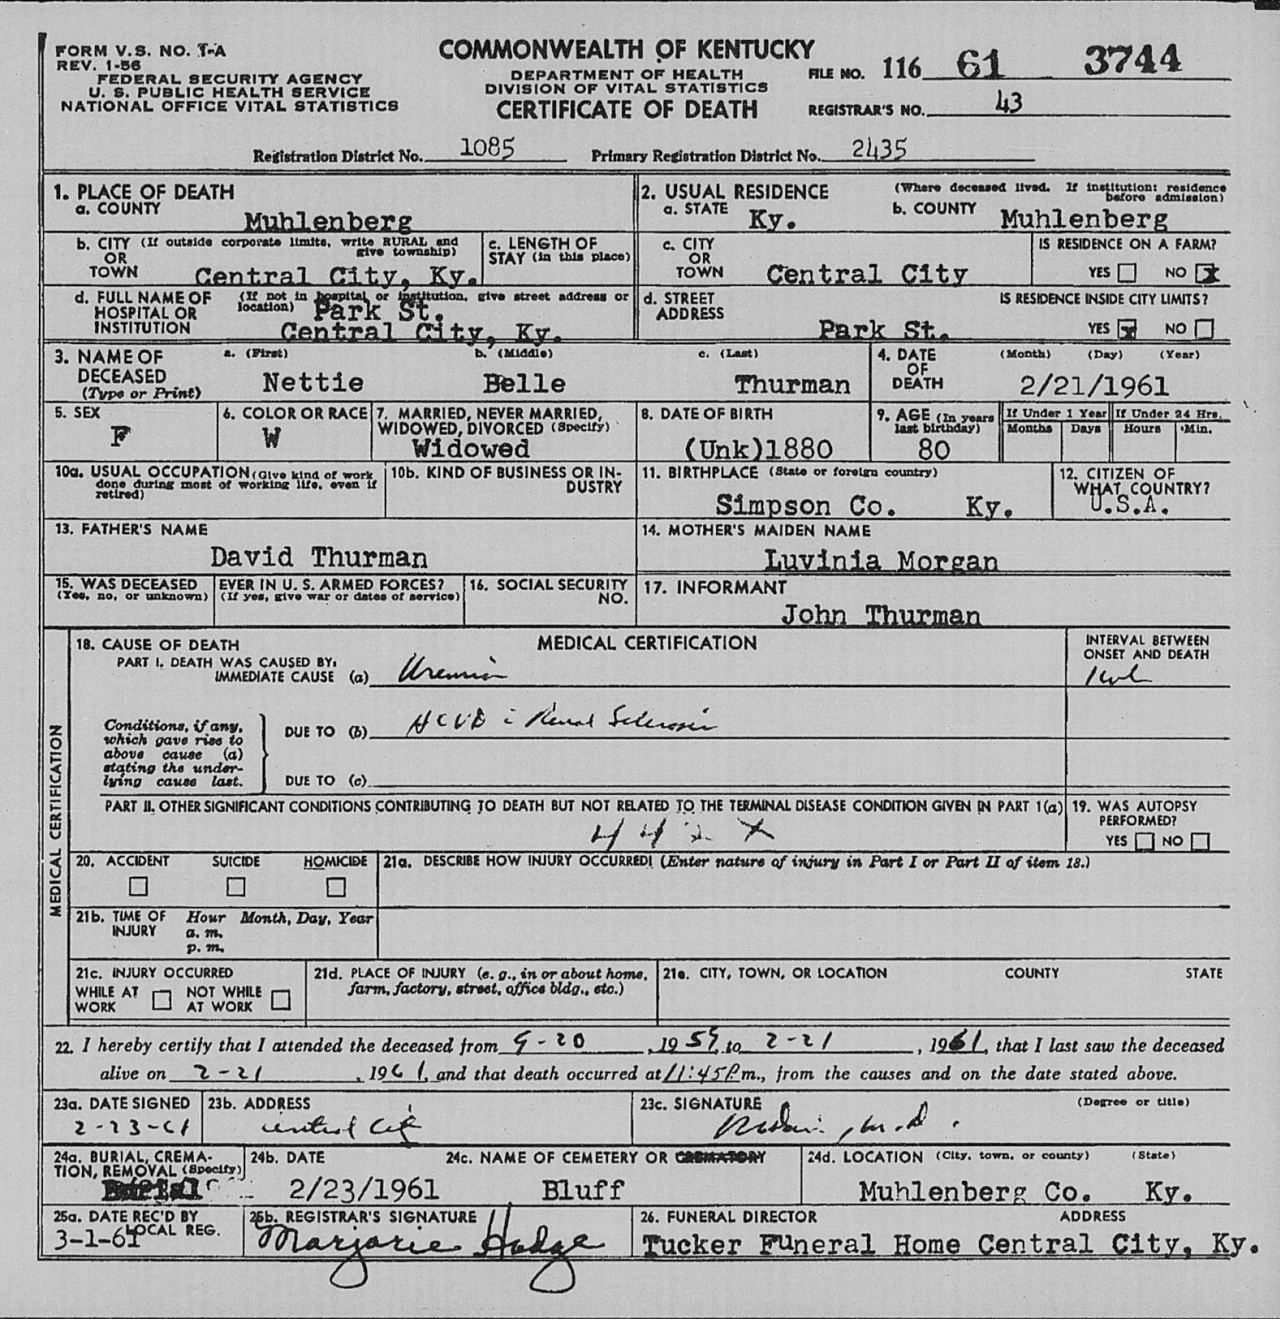 FORM V.S. NO. 1-A
REV. 1-56
FEDERAL SECURITY AGENCY
U. S. PUBLIC HEALTH SERVICE
NATIONAL OFFICE VITAL STATISTICS
COMMONWEALTH OF KENTUCKY
DEPARTMENT OF HEALTH
DIVISION OF VITAL STATISTICS
CERTIFICATE OF DEATH
FILE NO. 116 61 3744
REGISTRAR'S NO. 43
Registration District No. 1085 Primary Registration District No. 2435
1. PLACE OF DEATH
a. COUNTY
Muhlenberg
2. USUAL RESIDENCE (Where deceased lived. If institution: residence before admission)
a. STATE Ky. b. COUNTY Muhlenberg
b. CITY (If outside corporate limits, write RURAL and give township)
OR
TOWN Central City, Ky.
c. LENGTH OF STAY (in this place)
c. CITY
OR
TOWN Central City
IS RESIDENCE ON A FARM?
YES NO x
d. FULL NAME OF HOSPITAL OR INSTITUTION (If not in hospital or institution, give street address or location)
Park St.
Central City, Ky.
d. STREET ADDRESS Park St.
IS RESIDENCE INSIDE CITY LIMITS?
YES x NO
3. NAME OF DECEASED (Type or Print)
a. (First) b. (Middle) c. (Last)
Nettie Belle Thurman
4. DATE OF DEATH (Month) (Day) (Year)
2/21/1961
5. SEX
F
6. COLOR OR RACE
W
7. MARRIED, NEVER MARRIED, WIDOWED, DIVORCED (Specify)
Widowed
8. DATE OF BIRTH
(Unk)1880
9. AGE (In years last birthday)
80
If Under 1 Year If Under 24 Hrs.
Months Days Hours Min.
10a. USUAL OCCUPATION (Give kind of work done during most of working life, even if retired)
10b. KIND OF BUSINESS OR INDUSTRY
11. BIRTHPLACE (State or foreign country)
Simpson Co. Ky.
12. CITIZEN OF WHAT COUNTRY?
U.S.A.
13. FATHER'S NAME
David Thurman
14. MOTHER'S MAIDEN NAME
Luvinia Morgan
15. WAS DECEASED EVER IN U. S. ARMED FORCES?
(Yes, no, or unknown) (If yes, give war or dates of service)
16. SOCIAL SECURITY NO.
17. INFORMANT
John Thurman
MEDICAL CERTIFICATION
18. CAUSE OF DEATH MEDICAL CERTIFICATION
INTERVAL BETWEEN ONSET AND DEATH
PART I. DEATH WAS CAUSED BY:
IMMEDIATE CAUSE (a) Uremia 1 wk
Conditions, if any, which gave rise to above cause (a) stating the underlying cause last.
DUE TO (b) HCVD c Renal Sclerosis
DUE TO (c)
PART II. OTHER SIGNIFICANT CONDITIONS CONTRIBUTING TO DEATH BUT NOT RELATED TO THE TERMINAL DISEASE CONDITION GIVEN IN PART 1(a)
442 X
19. WAS AUTOPSY PERFORMED?
YES NO
20. ACCIDENT SUICIDE HOMICIDE
21a. DESCRIBE HOW INJURY OCCURRED! (Enter nature of injury in Part I or Part II of item 18.)
21b. TIME OF INJURY Hour Month, Day, Year
a. m.
p. m.
21c. INJURY OCCURRED
WHILE AT WORK NOT WHILE AT WORK
21d. PLACE OF INJURY (e. g., in or about home, farm, factory, street, office bldg., etc.)
21e. CITY, TOWN, OR LOCATION COUNTY STATE
22. I hereby certify that I attended the deceased from 9-20, 1959, to 2-21, 1961, that I last saw the deceased
alive on 2-21, 1961, and that death occurred at 11:45P.m., from the causes and on the date stated above.
23a. DATE SIGNED
2-23-61
23b. ADDRESS
Central City
23c. SIGNATURE (Degree or title)
, M.D.
24a. BURIAL, CREMATION, REMOVAL (Specify)
Burial
24b. DATE
2/23/1961
24c. NAME OF CEMETERY OR CREMATORY
Bluff
24d. LOCATION (City, town, or county) (State)
Muhlenberg Co. Ky.
25a. DATE REC'D BY LOCAL REG.
3-1-61
25b. REGISTRAR'S SIGNATURE
Marjorie Hodge
26. FUNERAL DIRECTOR ADDRESS
Tucker Funeral Home Central City, Ky.